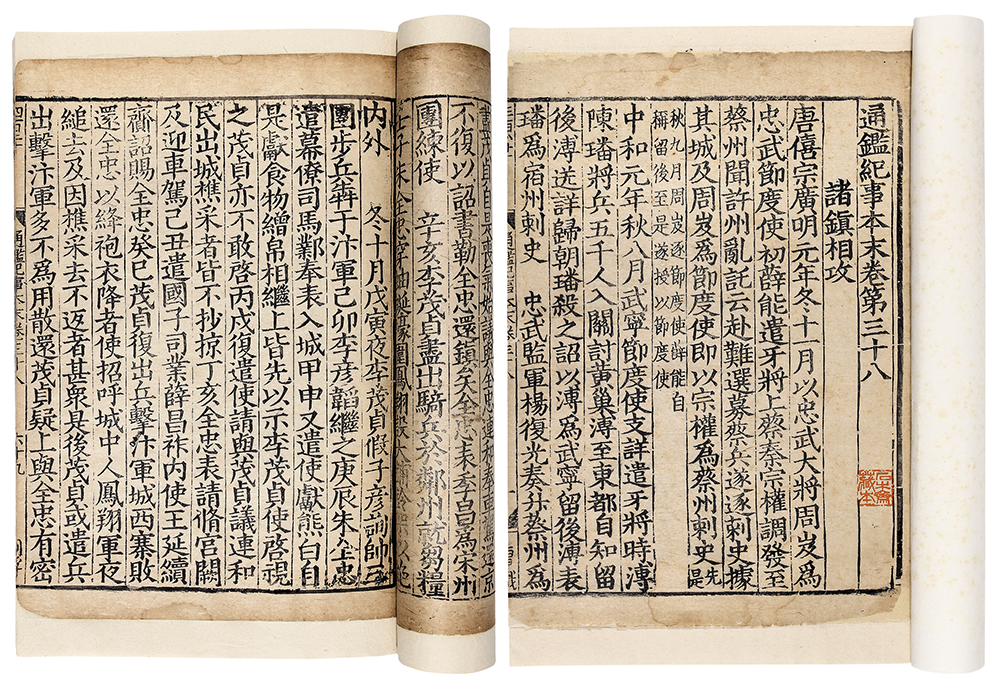 通鑑紀事本末卷第三十八
諸鎮相攻
唐僖宗廣明元年冬十一月以忠武大將周岌爲
忠武節度使初薛能遣牙將上蔡秦宗權調發至
蔡州聞許州亂託云赴難選募蔡兵遂逐刺史據
其城及周岌爲節度使即以宗權爲蔡州刺史先是
秋九月周岌逐節度使薛能自
稱留後至是遂授以節度使
中和元年秋八月武寧節度使支詳遣牙將時溥
陳璠將兵五千人入關討黃巢溥至東都自知留
後溥送詳歸朝璠殺之詔以溥爲武寧留後溥表
璠爲宿州刺史 忠武監軍楊復光奏升蔡州爲
藏本
茂貞自是喪氣始議與全忠連和奉車駕還京
不復以詔書勒全忠還鎮矣全忠表李昌爲宋州
團練使 辛亥李茂貞盡出騎兵於鄰州就芻糧
壬子朱全忠穿蚰蜒壕圍鳳翔設
內外 冬十月戊寅夜李茂貞假子彥詢帥三
團步兵犇于汴軍己卯李彥韜繼之庚辰朱全忠
遣幕僚司馬鄴奉表入城甲申又遣使獻熊白自
是獻食物繒帛相繼上皆先以示李茂貞使啓視
之茂貞亦不敢啓丙戌復遣使請與茂貞議連和
民出城樵采者皆不抄掠丁亥全忠表請脩宮闕
及迎車駕己丑遣國子司業薛昌祚內使王延繢
齎詔賜全忠癸巳茂貞復出兵擊汴軍城西寨敗
還全忠以絳袍衣降者使招呼城中人鳳翔軍夜
縋去及因樵采去不返者甚衆是後茂貞或遣兵
出擊汴軍多不爲用散還茂貞疑上與全忠有密
通鑑紀事本末卷三十八 六十九